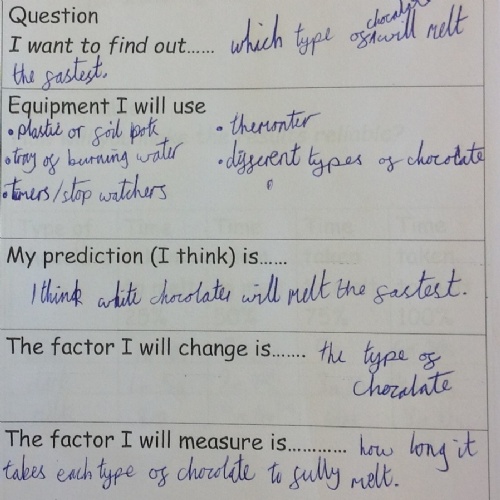 Question
I want to find out...... which type of chocolate will melt
the fastest.
Equipment I will use
• plastic or foil pots
• thermonter
• tray of burning water
• different types of chocolate
• timers/stop watchers
My prediction (I think) is......
I think white chocolates will melt the fastest.
The factor I will change is....... the type of
chocolate
The factor I will measure is............ how long it
takes each type of chocolate to fully melt.